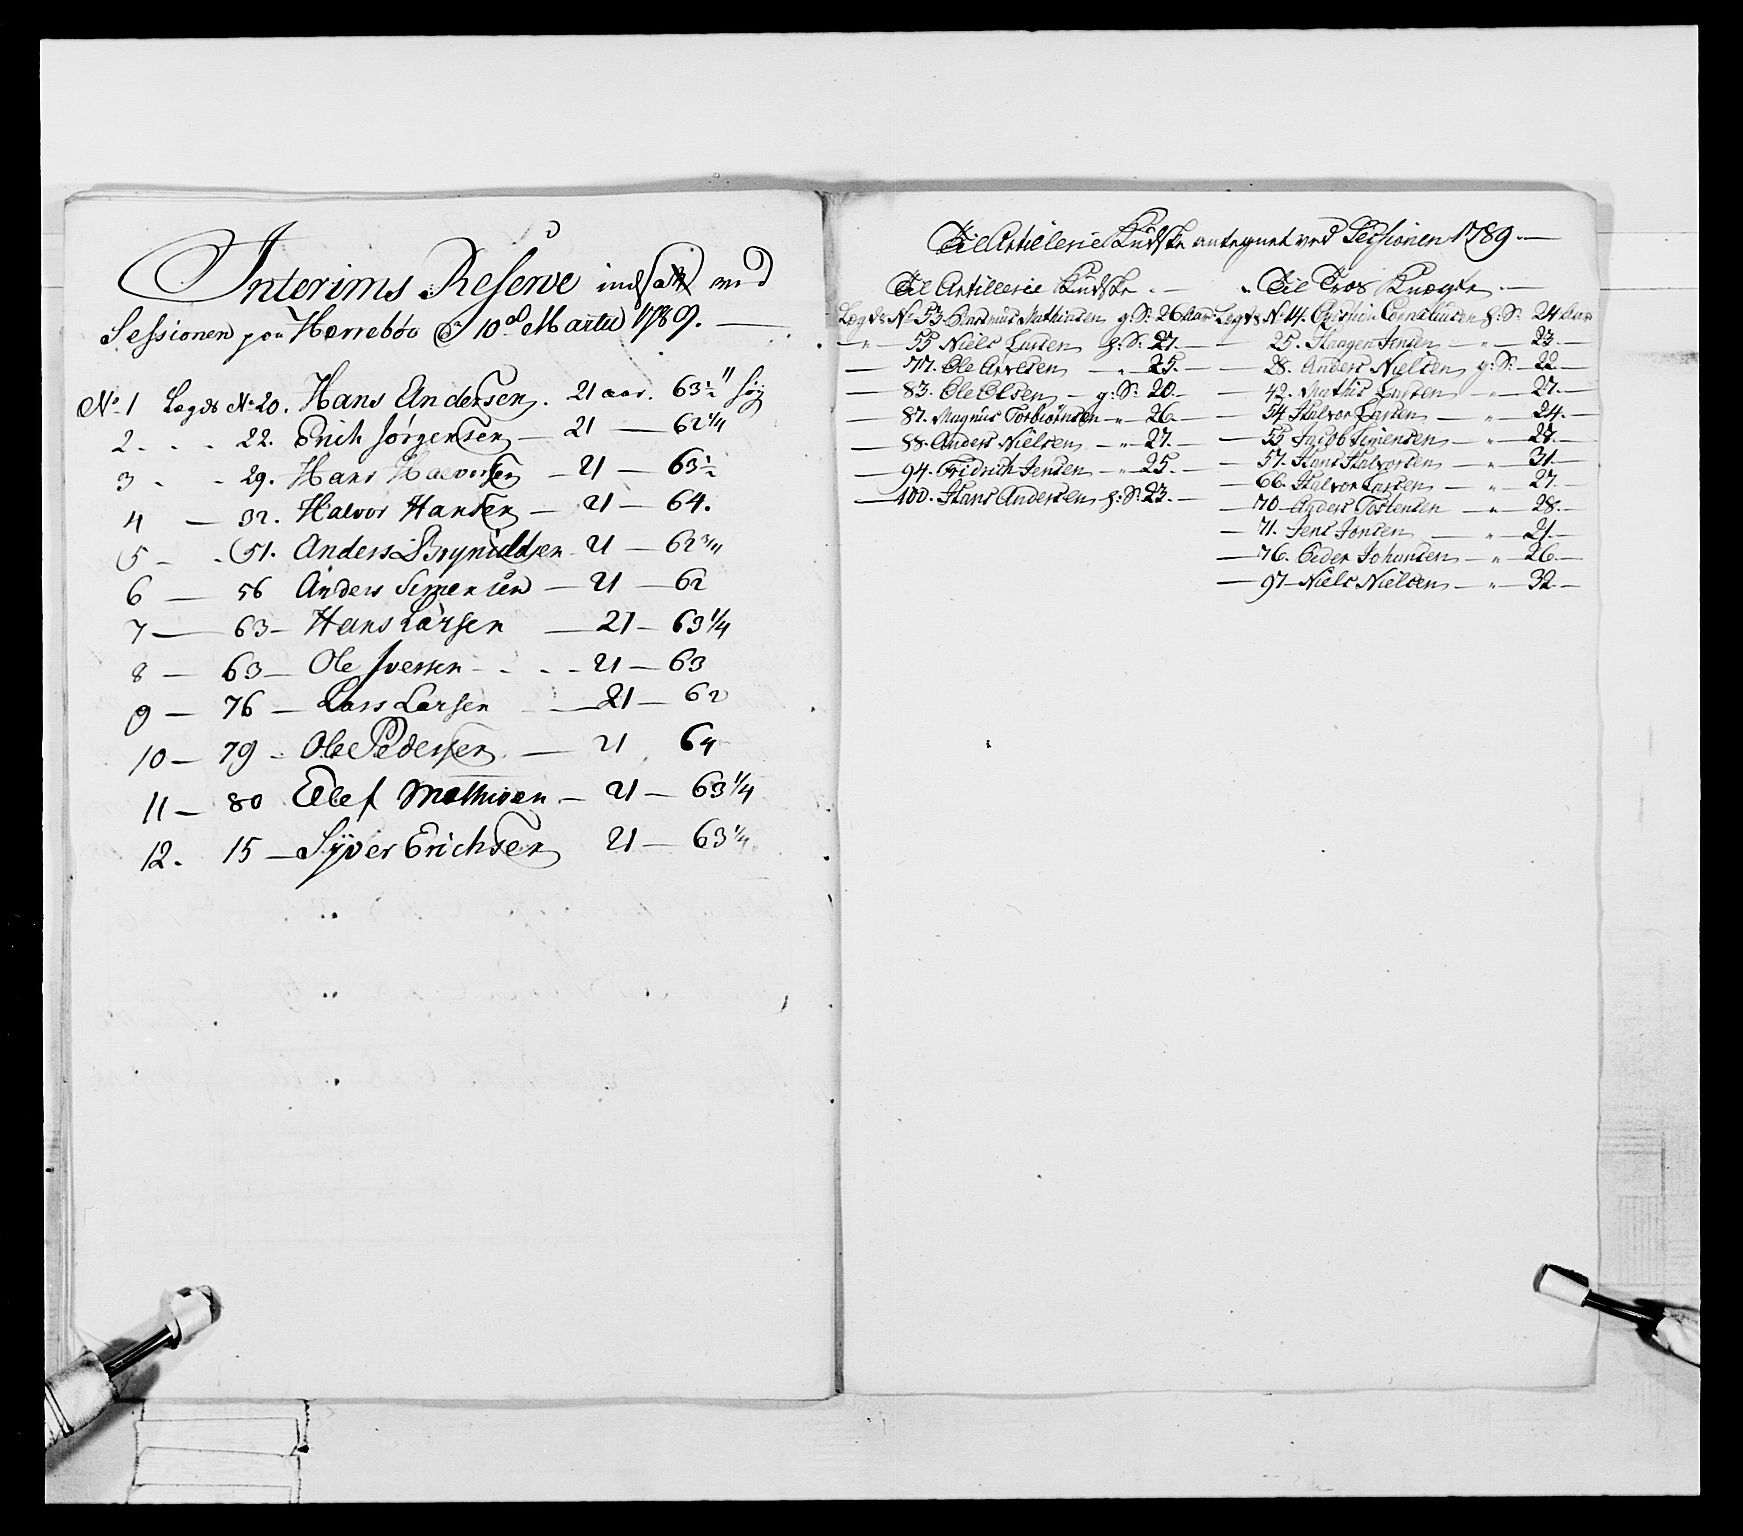 Interims Reserve indsatt ved
Sessionen paa Herrebøe d 10de Martii 1789.
No 1 Lægds No 20. Hans Andersen. 21 aar. 63½" høy
2. 22. Erich Jørgensen 21 — 62¼
3 29. Hans Halvorsen — 21 — 63½
4 — 32. Halvor Hansen — 21 — 64.
5 — 51. Anders Brynildsen 21 — 62¾
6 — 56 Anders Simensen — 21 — 62
7 — 63 — Hans Larsen — 21 — 63¼
8 — 63 — Ole Iversen - - - 21 — 63
9 — 76 — Lars Larsen — 21 — 62
10 — 79 - Ole Pedersen — 21 64
11 — 80 Ellef Mathisen — 21 — 63¼
12. 15 — Syver Erichsen 21 — 63¼.
Til Artillerie Kudske antegnet ved Sessionen 1789.—
Til Artillerie Kudske.
Lægds No 53. Rasmus Mathisen g: S: 26 Aar
— " — 55 Niels Larsen h: S: 27.—
— 77. Ole Arvesen — " — 25.—
— 83. Ole Olsen — g: S: 20.—
— 87. Magnus Torbiørnsen — " — 26.—
— 88. Anders Nielsen — " — 27.—
— 94. Fridrich Jensen — " — 25.—
— 100. Hans Andersen h: S: 23.—
Til Tros Knægte.—
Lægds No 14. Christen Corneliusen h: S: 24 Aar
25. Haagen Jensen — " — 23.—
— 28. Anders Nielsen g: S: — 22.—
— 42. Mathis Larsen — " — 27.—
— 54. Halvor Larsen — " — 24.—
— 55 Jacob Simensen — " — 28.—
— 57. Hans Halvorsen — " — 31.—
— 66. Halvor Larsen — " — 27.—
— 70 Anders Tostensen — " — 28.—
— 71. Jens Jonsen — " — 21.—
— 76. Peder Johansen — " — 26.—
— 97 — Niels Nielsen — " — 32.—